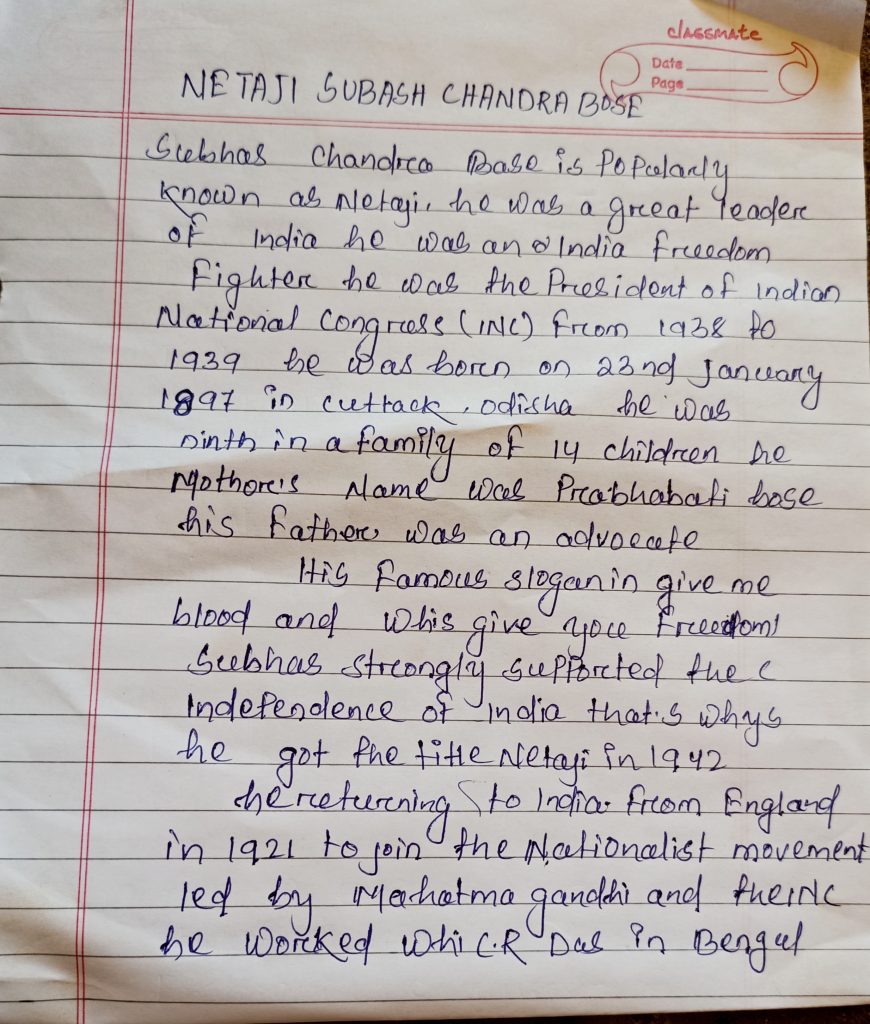 classmate
Date
Page
NETAJI SUBASH CHANDRA BOSE
Subhas Chandra Base is Popularly
known as Netaji. he was a great leader
of India he was an India freedom
Fighter he was the President of Indian
National Congress (INC) from 1938 to
1939 he was born on 23nd January
1897 in cuttack, odisha he was
ninth in a family of 14 children he
Mothore's Name was Prabhabati bose
his Father was an advocate
His Famous slogan in give me
blood and whis give you Freedom!
Subhas strongly supported the
Independence of India that's whys
he got the title Netaji in 1942
he returning to India from England
in 1921 to join the Nationalist movement
led by Mahatma gandhi and the INC
he worked whi C.R Das in Bengal